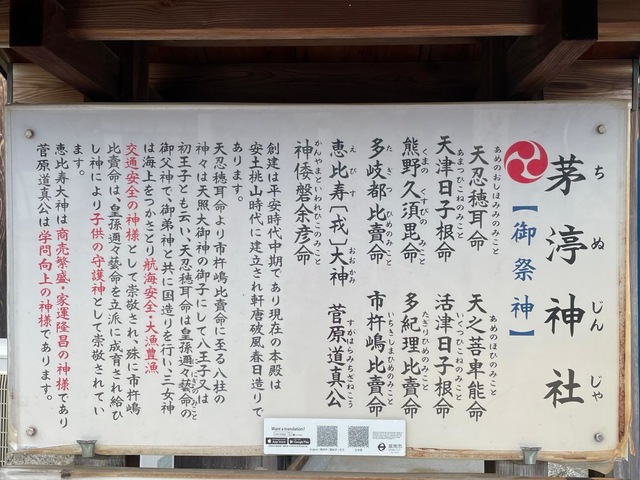 茅渟神社
ちぬじんじゃ
【御祭神】
天忍穂耳命
あめのおしほみみのみこと
天之菩卑能命
あめのほひのみこと
天津日子根命
あまつひこねのみこと
活津日子根命
いくつひこねのみこと
熊野久須毘命
くまのくすびのみこと
多紀理比賣命
たぎりひめのみこと
多岐都比賣命
たきつひめのみこと
市杵嶋比賣命
いちきしまひめのみこと
恵比寿〔戎〕大神
えびすおおかみ
菅原道真公
すがはらみちざねこう
神倭磐余彦命
かんやまといわれひこのみこと
創建は平安時代中期であり現在の本殿は
安土桃山時代に建立され軒唐破風春日造りで
あります。
天忍穂耳命より市杵嶋比賣命に至る八柱の
神々は天照大御神の御子にして八王子又は
初王子とも云い、天忍穂耳命は皇孫邇々藝命の
みこと
御父神で、御弟神と共に国造りを行い、三女神
は海上をつかさどり航海安全・大漁豊漁
交通安全の神様として崇敬され、殊に市杵嶋
比賣命は、皇孫邇々藝命を立派に成育され給ひ
し神により子供の守護神として崇敬されてい
ます。
恵比寿大神は商売繁盛・家運隆昌の神様であり
菅原道真公は学問向上の神様であります。
Want a translation?
App Store
Google Play
泉南市